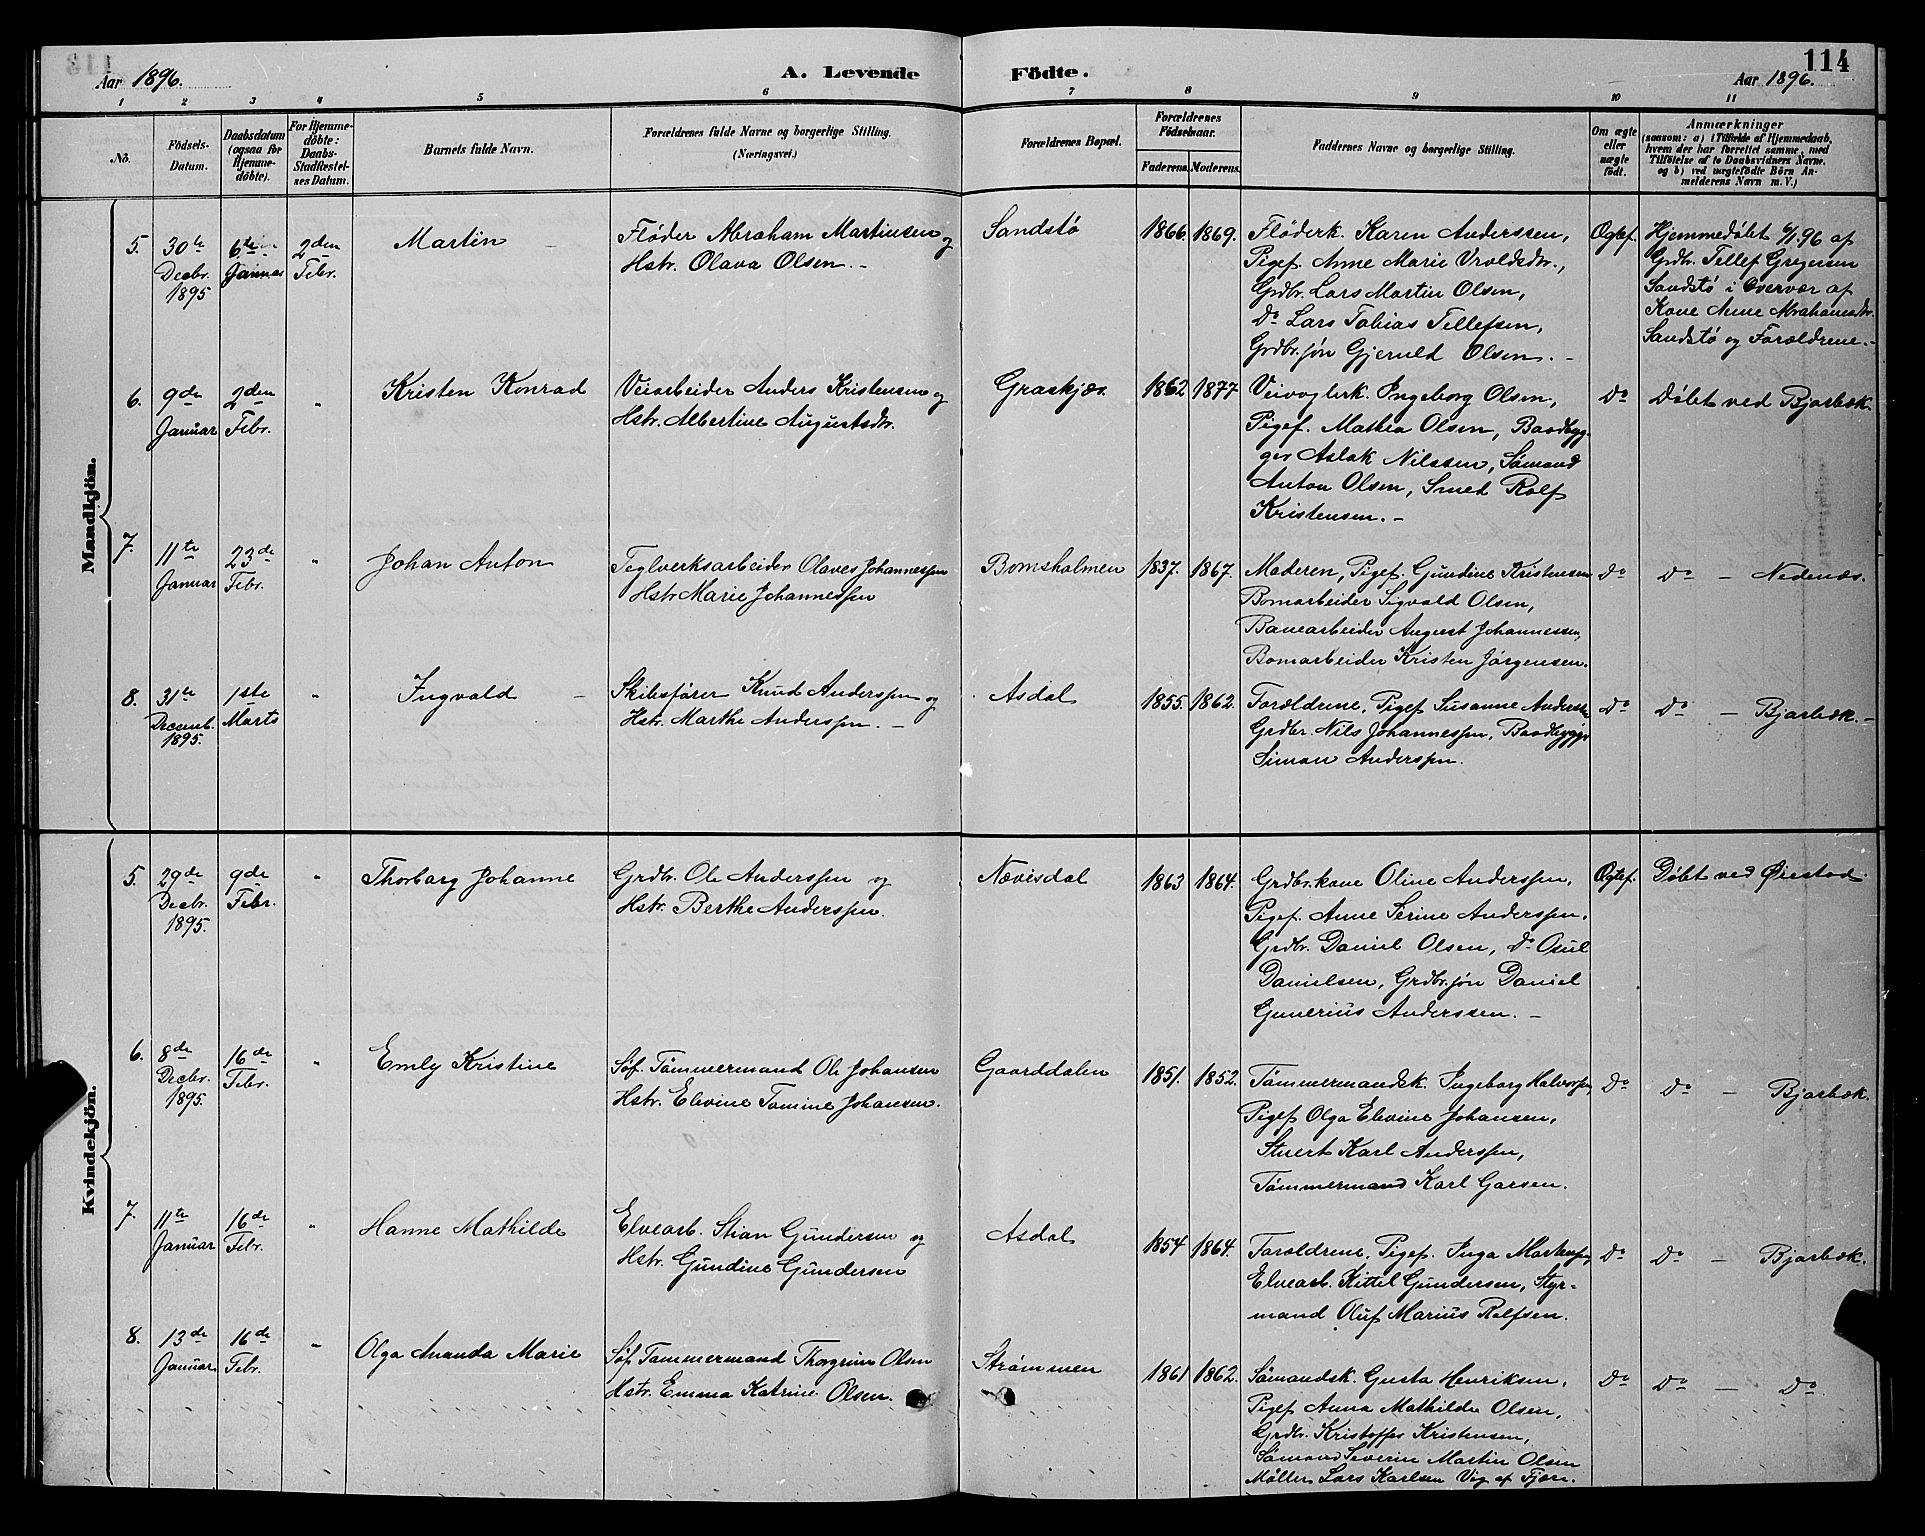 Aar 1896.
A. Levende
Födte.
114
Aar 1896.
1 2 3 4 5 6 7 8 9 10 11
No.
Födsels-
Datum.
Daabsdatum
(ogsaa for
Hjemme-
döbte).
For Hjemme-
döbte:
Daabs-
Stadfæstel-
ses Datum.
Barnets fulde Navn.
Forældrenes fulde Navne og borgerlige Stilling.
(Næringsvei.)
Forældrenes Bopæl.
Forældrenes
Födselsaar.
Faderens. Moderens.
Faddernes Navne og borgerlige Stilling.
Om ægte
eller
uægte
födt.
Anmærkninger
(saasom: a) i Tilfælde af Hjemmedaab,
hvem der har forrettet samme, med
Tilföielse af to Daabsvidners Navne.
og b) ved uægtefödte Börn An-
melderens Navn m. V.)
Mandkjön.
5.
30te
Decbr.
1895
6te
Januar
2den
Febr.
Martin
Fløder Abraham Martinsen og
Hstr. Olava Olsen. –
Sandstø
1866. 1869.
Fløderk. Karen Anderssen,
Pigef. Anne Marie Vroldsdtr.,
Grdbr. Lars Martin Olsen,
Do Lars Tobias Tellefsen,
Grdbr.søn Gjeruld Olsen. –
Ægtef.
Hjemmedøbt 6/1 96 af
Grdbr. Tellef Gregersen
Sandstø i Overvær af
Kone Anne Abrahamsdtr.
Sandstø og Forældrene. –
6.
9de
Januar
2den
Febr.
"
Kristen Konrad
Veiarbeider Anders Kristensen og
Hstr. Albertine Augustsdtr.
Graskjær
1862 1877
Veivogterk. Ingeborg Olsen,
Pigef. Mathea Olsen, Baadbyg-
ger Aslak Nilssen, Sømand
Anton Olsen, Smed Rolf
Kristensen. –
Do
Døbt ved Bjorbæk.
7.
11te
Januar
23de
Febr.
"
Johan Anton
Teglverksarbeider Olaves Johannessen
Hstr. Marie Johannessen
Bomsholmen
1837. 1867.
Moderen, Pigef. Gundine Kristensen
Bomarbeider Sigvald Olsen,
Banearbeider August Johannessen,
Bomarbeider Kristen Jørgensen.
Do
Do – Nedenæs.
8.
31te
Decemb.
1895.
1ste
Marts
"
Ingvald
Skibsfører Knud Anderssen og
Hstr. Marthe Anderssen. –
Asdal
1855. 1862.
Forældrene, Pigef. Susanne Anderssen
Grdbr. Nils Johannessen, Baadbygger
Simon Anderssen.
Do
Do – Bjorbæk. –
Kvindekjön.
5.
29de
Decbr.
1895.
9de
Febr.
"
Thorborg Johanne
Grdbr. Ole Anderssen og
Hstr. Berthe Anderssen.
Nævisdal
1863 1864.
Grdbr.kone Oline Anderssen,
Pigef. Anne Serine Anderssen.
Grdbr. Daniel Olsen, Do Osul
Danielsen, Grdbr.søn Daniel
Gunerius Anderssen. –
Ægtef.
Døbt ved Øiestad
6.
8de
Decbr.
1895.
16de
Febr.
"
Emly Kristine
Søf. Tømmermand Ole Johansen
Hstr. Elevine Tomine Johansen.
Gaarddalen
1851. 1852.
Tømmermandsk. Ingeborg Halvorsen,
Pigef. Olga Elevine Johansen,
Stuert Karl Anderssen,
Tømmermand Karl Garsen.
Do
Do – Bjorbæk.
7.
11te
Januar
16de
Febr.
"
Hanne Mathilde
Elvearb. Stian Gundersen og
Hstr. Gundine Gundersen
Asdal
1854 1864.
Forældrene, Pigef. Inga Mortensen,
Elvearb. Kittel Gundersen, Styr-
mand Oluf Marius Rolfsen.
Do
Do – Bjorbæk.
8.
13de
Januar
16de
Febr.
"
Olga Amanda Marie
Søf. Tømmermand Thorgrim Olsen
Hstr. Emma Katrine Olsen.
Strømmen
1861 1862.
Sømandsk. Gusta Henriksen,
Pigef. Anna Mathilde Olsen,
Grdbr. Kristoffer Kristensen,
Sømand Severin Martin Olsen
Møller Lars Karlsen Vig af Fjære.
Do
Do – Do.